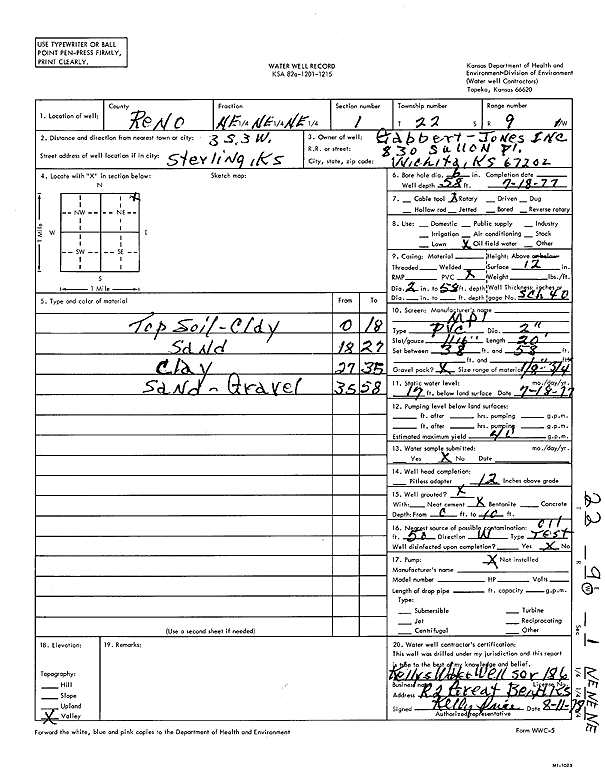 USE TYPEWRITER OR BALL
POINT PEN-PRESS FIRMLY,
PRINT CLEARLY.
WATER WELL RECORD
KSA 82a-1201-1215
Kansas Department of Health and
Environment-Division of Environment
(Water well Contractors)
Topeka, Kansas 66620
1. Location of well: County Reno Fraction NE 1/4 NE 1/4 NE 1/4 Section number 1 Township number T 22 S Range number R 9 W
2. Distance and direction from nearest town or city: 3 S, 3 W.
Street address of well location if in city: Sterling, KS
3. Owner of well: Gabbert-Jones INC
R.R. or street: 830 Sutton Pl.
City, state, zip code: Wichita, KS 67202
4. Locate with "X" in section below: Sketch map:
N
NW NE X
W E
SW SE
S
1 Mile
1 Mile
5. Type and color of material From To
Top Soil-Clay 0 18
Sand 18 27
Clay 27 35
Sand-Gravel 35 58
(Use a second sheet if needed)
6. Bore hole dia. 6 in. Completion date
Well depth 58 ft. 7-18-77
7. Cable tool X Rotary Driven Dug
Hollow rod Jetted Bored Reverse rotary
8. Use: Domestic Public supply Industry
Irrigation Air conditioning Stock
Lawn X Oil field water Other
9. Casing: Material Height: Above or below
Threaded Welded Surface 12 in.
RMP PVC X Weight lbs./ft.
Dia. 2 in. to 58 ft. depth Wall Thickness: inches or
Dia. in. to ft. depth gage No. Sch 40
10. Screen: Manufacturer's name
Type PVC Dia. 2"
Slot/gauze Length 20'
Set between 38 ft. and 58 ft.
ft. and ft.
Gravel pack? X Size range of material
11. Static water level: mo./day/yr.
17 ft. below land surface Date 7-18-77
12. Pumping level below land surfaces:
ft. after hrs. pumping g.p.m.
ft. after hrs. pumping g.p.m.
Estimated maximum yield g.p.m.
13. Water sample submitted: mo./day/yr.
Yes X No Date
14. Well head completion:
Pitless adapter 12 Inches above grade
15. Well grouted? X
With: Neat cement X Bentonite Concrete
Depth: From 0 ft. to 10 ft.
16. Nearest source of possible contamination: oil
ft. 50 Direction W Type Test
Well disinfected upon completion? Yes X No
17. Pump: X Not installed
Manufacturer's name
Model number HP Volts
Length of drop pipe ft. capacity g.p.m.
Type:
Submersible Turbine
Jet Reciprocating
Centrifugal Other
18. Elevation:
Topography:
Hill
Slope
Upland
X Valley
19. Remarks:
20. Water well contractor's certification:
This well was drilled under my jurisdiction and this report
is true to the best of my knowledge and belief.
Kellys Water Well Ser 186
Business name License No.
Address R2 Great Bend KS
Signed Kelly Price Date 8-11-78
Authorized representative
Forward the white, blue and pink copies to the Department of Health and Environment
Form WWC-5
T 22 - R 9 W - Sec 1 1/4 1/4 1/4 NE NE NE